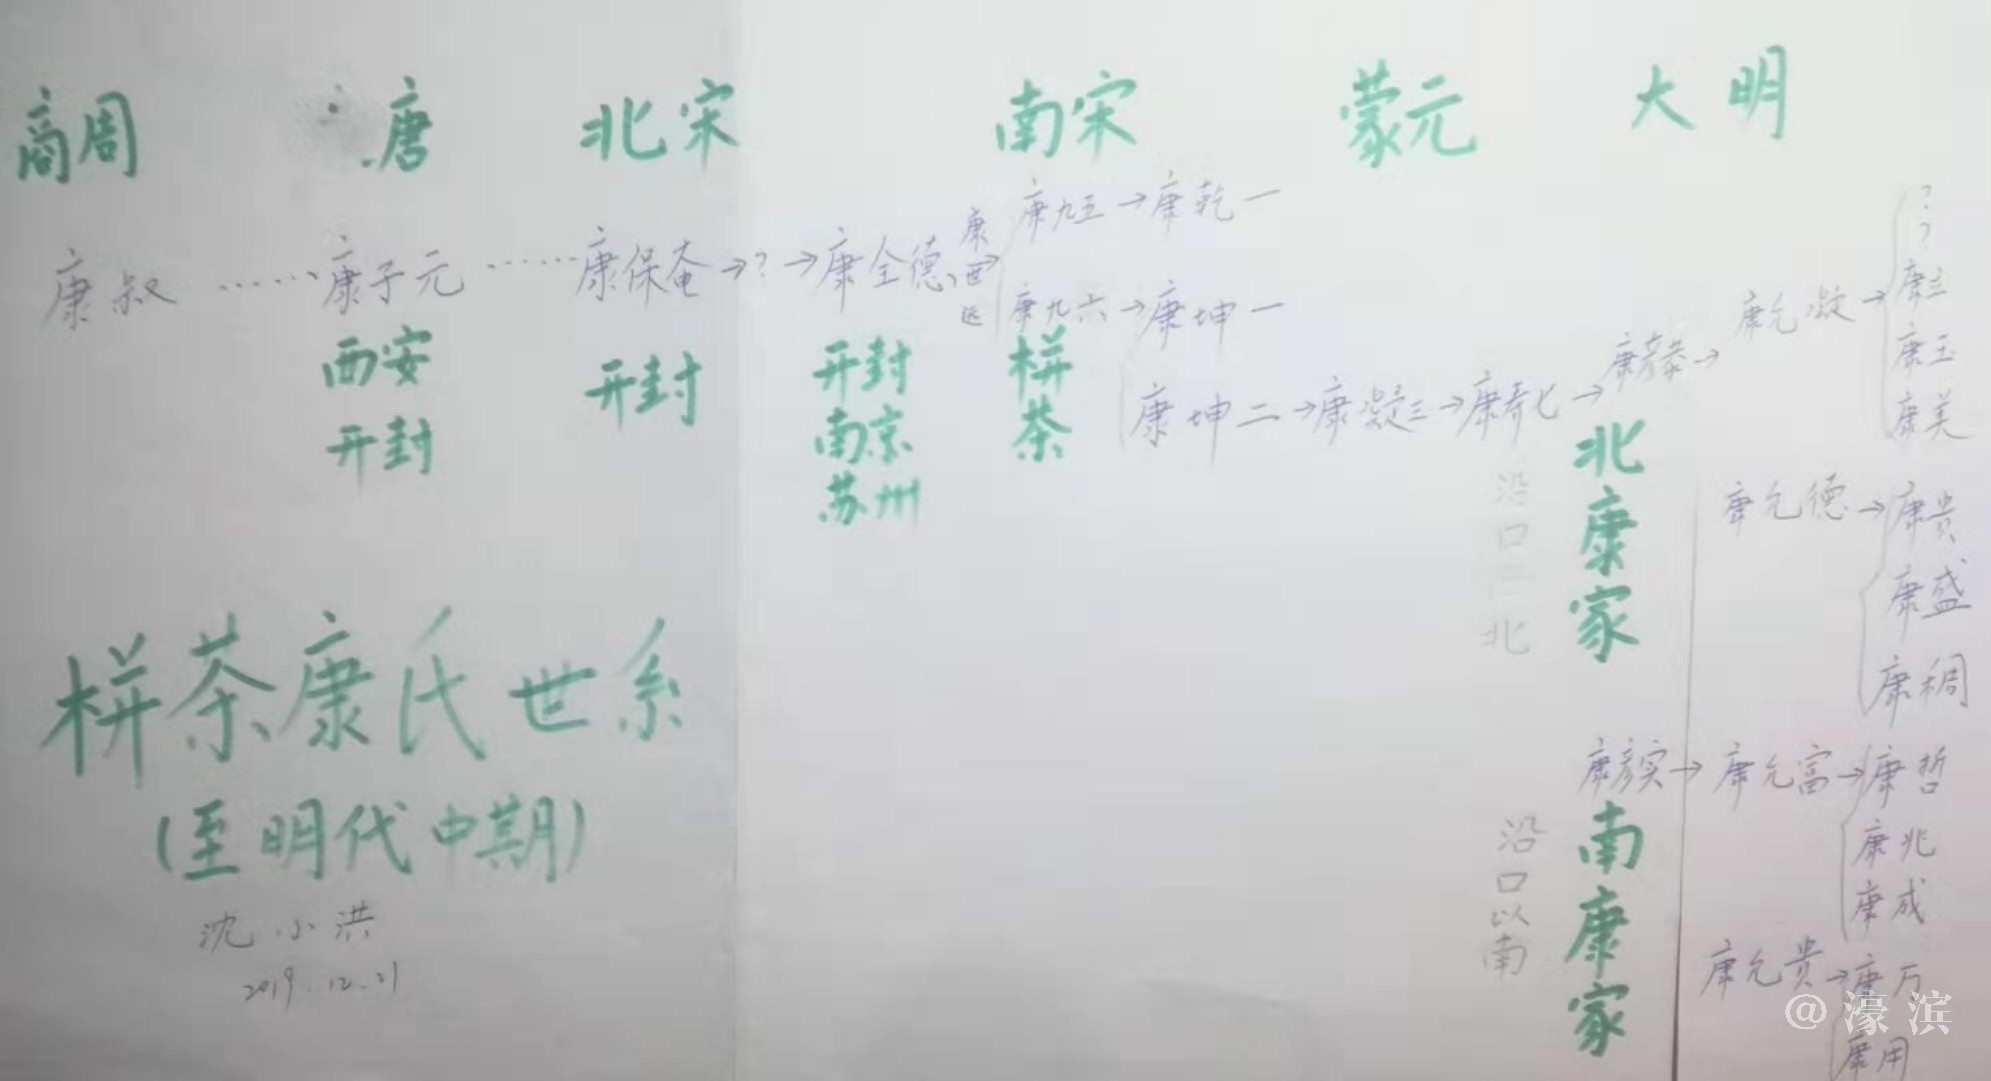 商周 唐 北宋 南宋 蒙元 大明
康叔 …… 康子元 …… 康保奄 → ? → 康全德、康世远 →
康九五 → 康乾一
康九六 → 康坤一
康坤二 → 康凝三 → 康寿七 → 康彦泰 → 康允凝 →
?
?
康立
康玉
康美
西安
开封
开封
开封
南京
苏州
栟茶
北康家
沿口 北
康允德 → 康贵
康盛
康稠
康彦实 → 康允富 → 康哲
康兆
康成
南康家
沿口以南
康允贵 → 康万
康用
栟茶康氏世系
(至明代中期)
沈小洪
2019.12.21
@濠滨